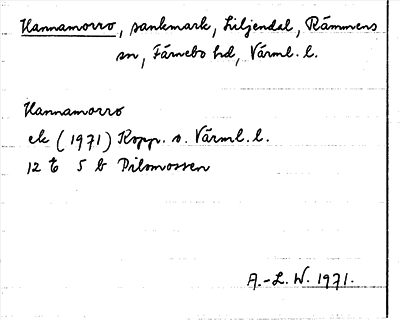 Hannamorro, sankmark, Liljendal, Rämmens
sn, Färnebo hd, Värml. l.
Hannamorro
ek (1971) Kopp. o. Värml. l.
12 E 5 b Pilomossen
A.-L. W. 1971.